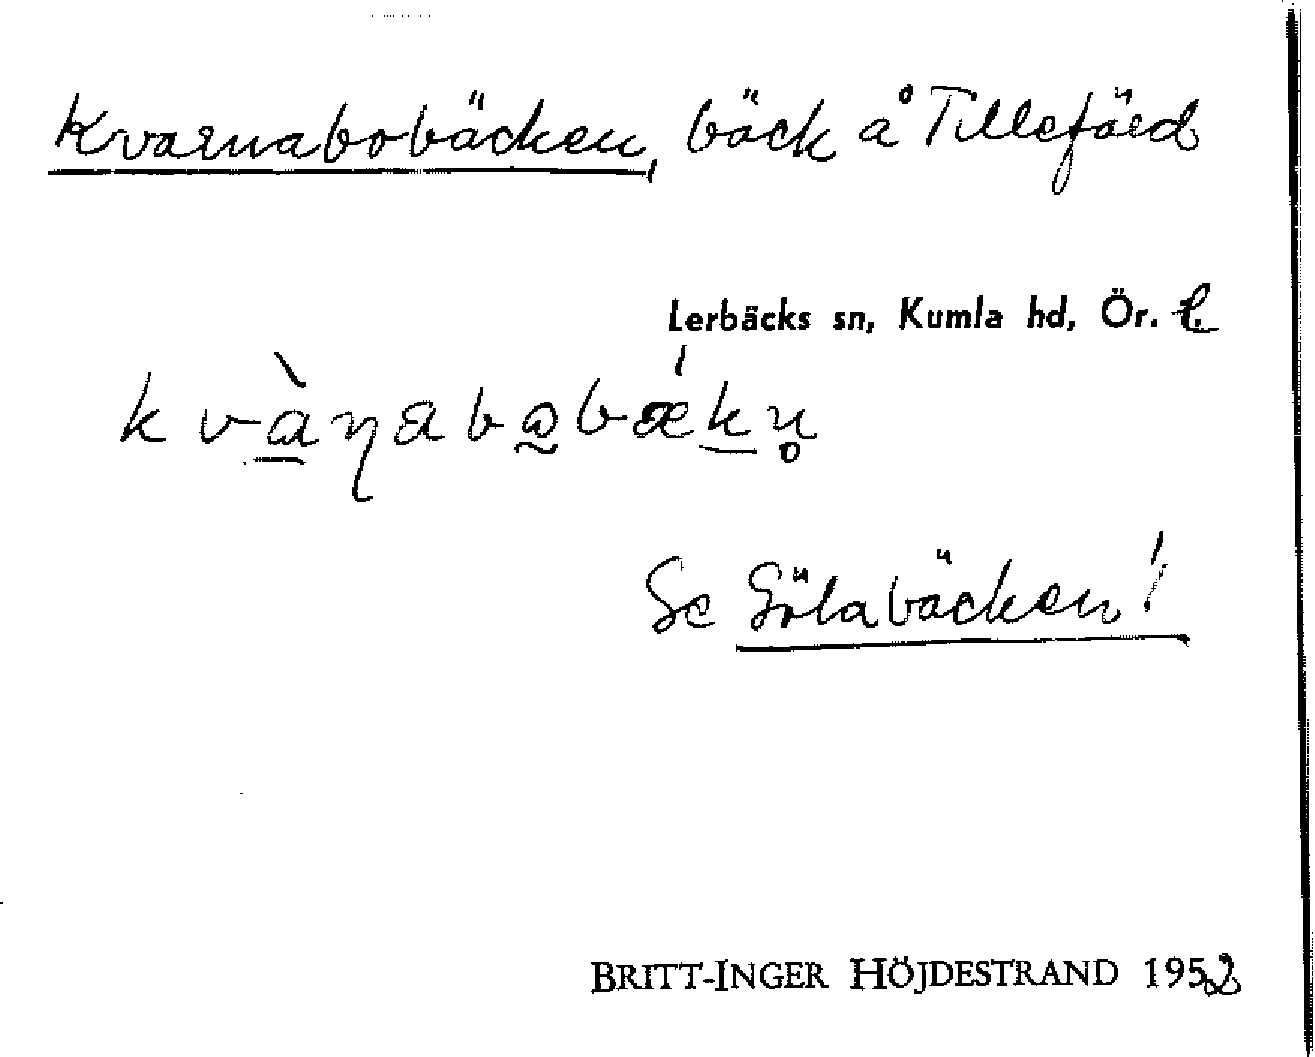 Kvarnabobäcken, bäck å Tillefärd
Lerbäcks sn, Kumla hd, Ör. l.
Se Sölabäcken!
BRITT-INGER HÖJDESTRAND 1952